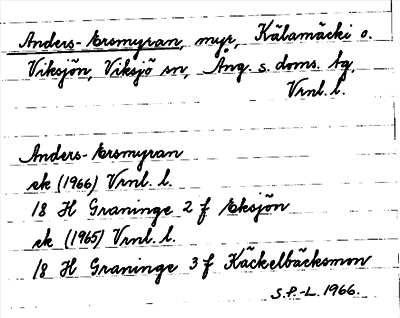 Anders-Ersmyran, myr, Käbamäcki o.
Viksjön, Viksjö sn, Ång. s. doms. tg,
Vrnl. l.
Anders-Ersmyran
ek (1966) Vrnl. l.
18 H Graninge 2 f Eksjön
ek (1965) Vrnl. l.
18 H Graninge 3 f Käckelbäcksmon
S.P.-L. 1966.